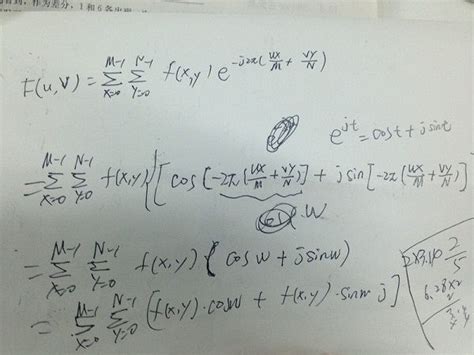 作为差分，1和6各
F(u,v) = \sum_{x=0}^{M-1} \sum_{y=0}^{N-1} f(x,y) e^{-j2π(\frac{ux}{M} + \frac{vy}{N})}
e^{jt} = cost + jsint
= \sum_{x=0}^{M-1} \sum_{y=0}^{N-1} f(x,y) [cos[-2π(\frac{ux}{M} + \frac{vy}{N})] + jsin[-2π(\frac{ux}{M} + \frac{vy}{N})]
W
= \sum_{x=0}^{M-1} \sum_{y=0}^{N-1} f(x,y) ( cosw + jsinw)
= \sum_{x=0}^{M-1} \sum_{y=0}^{N-1} [f(x,y)·cosw + f(x,y)·sinw j]
2
5
6.28